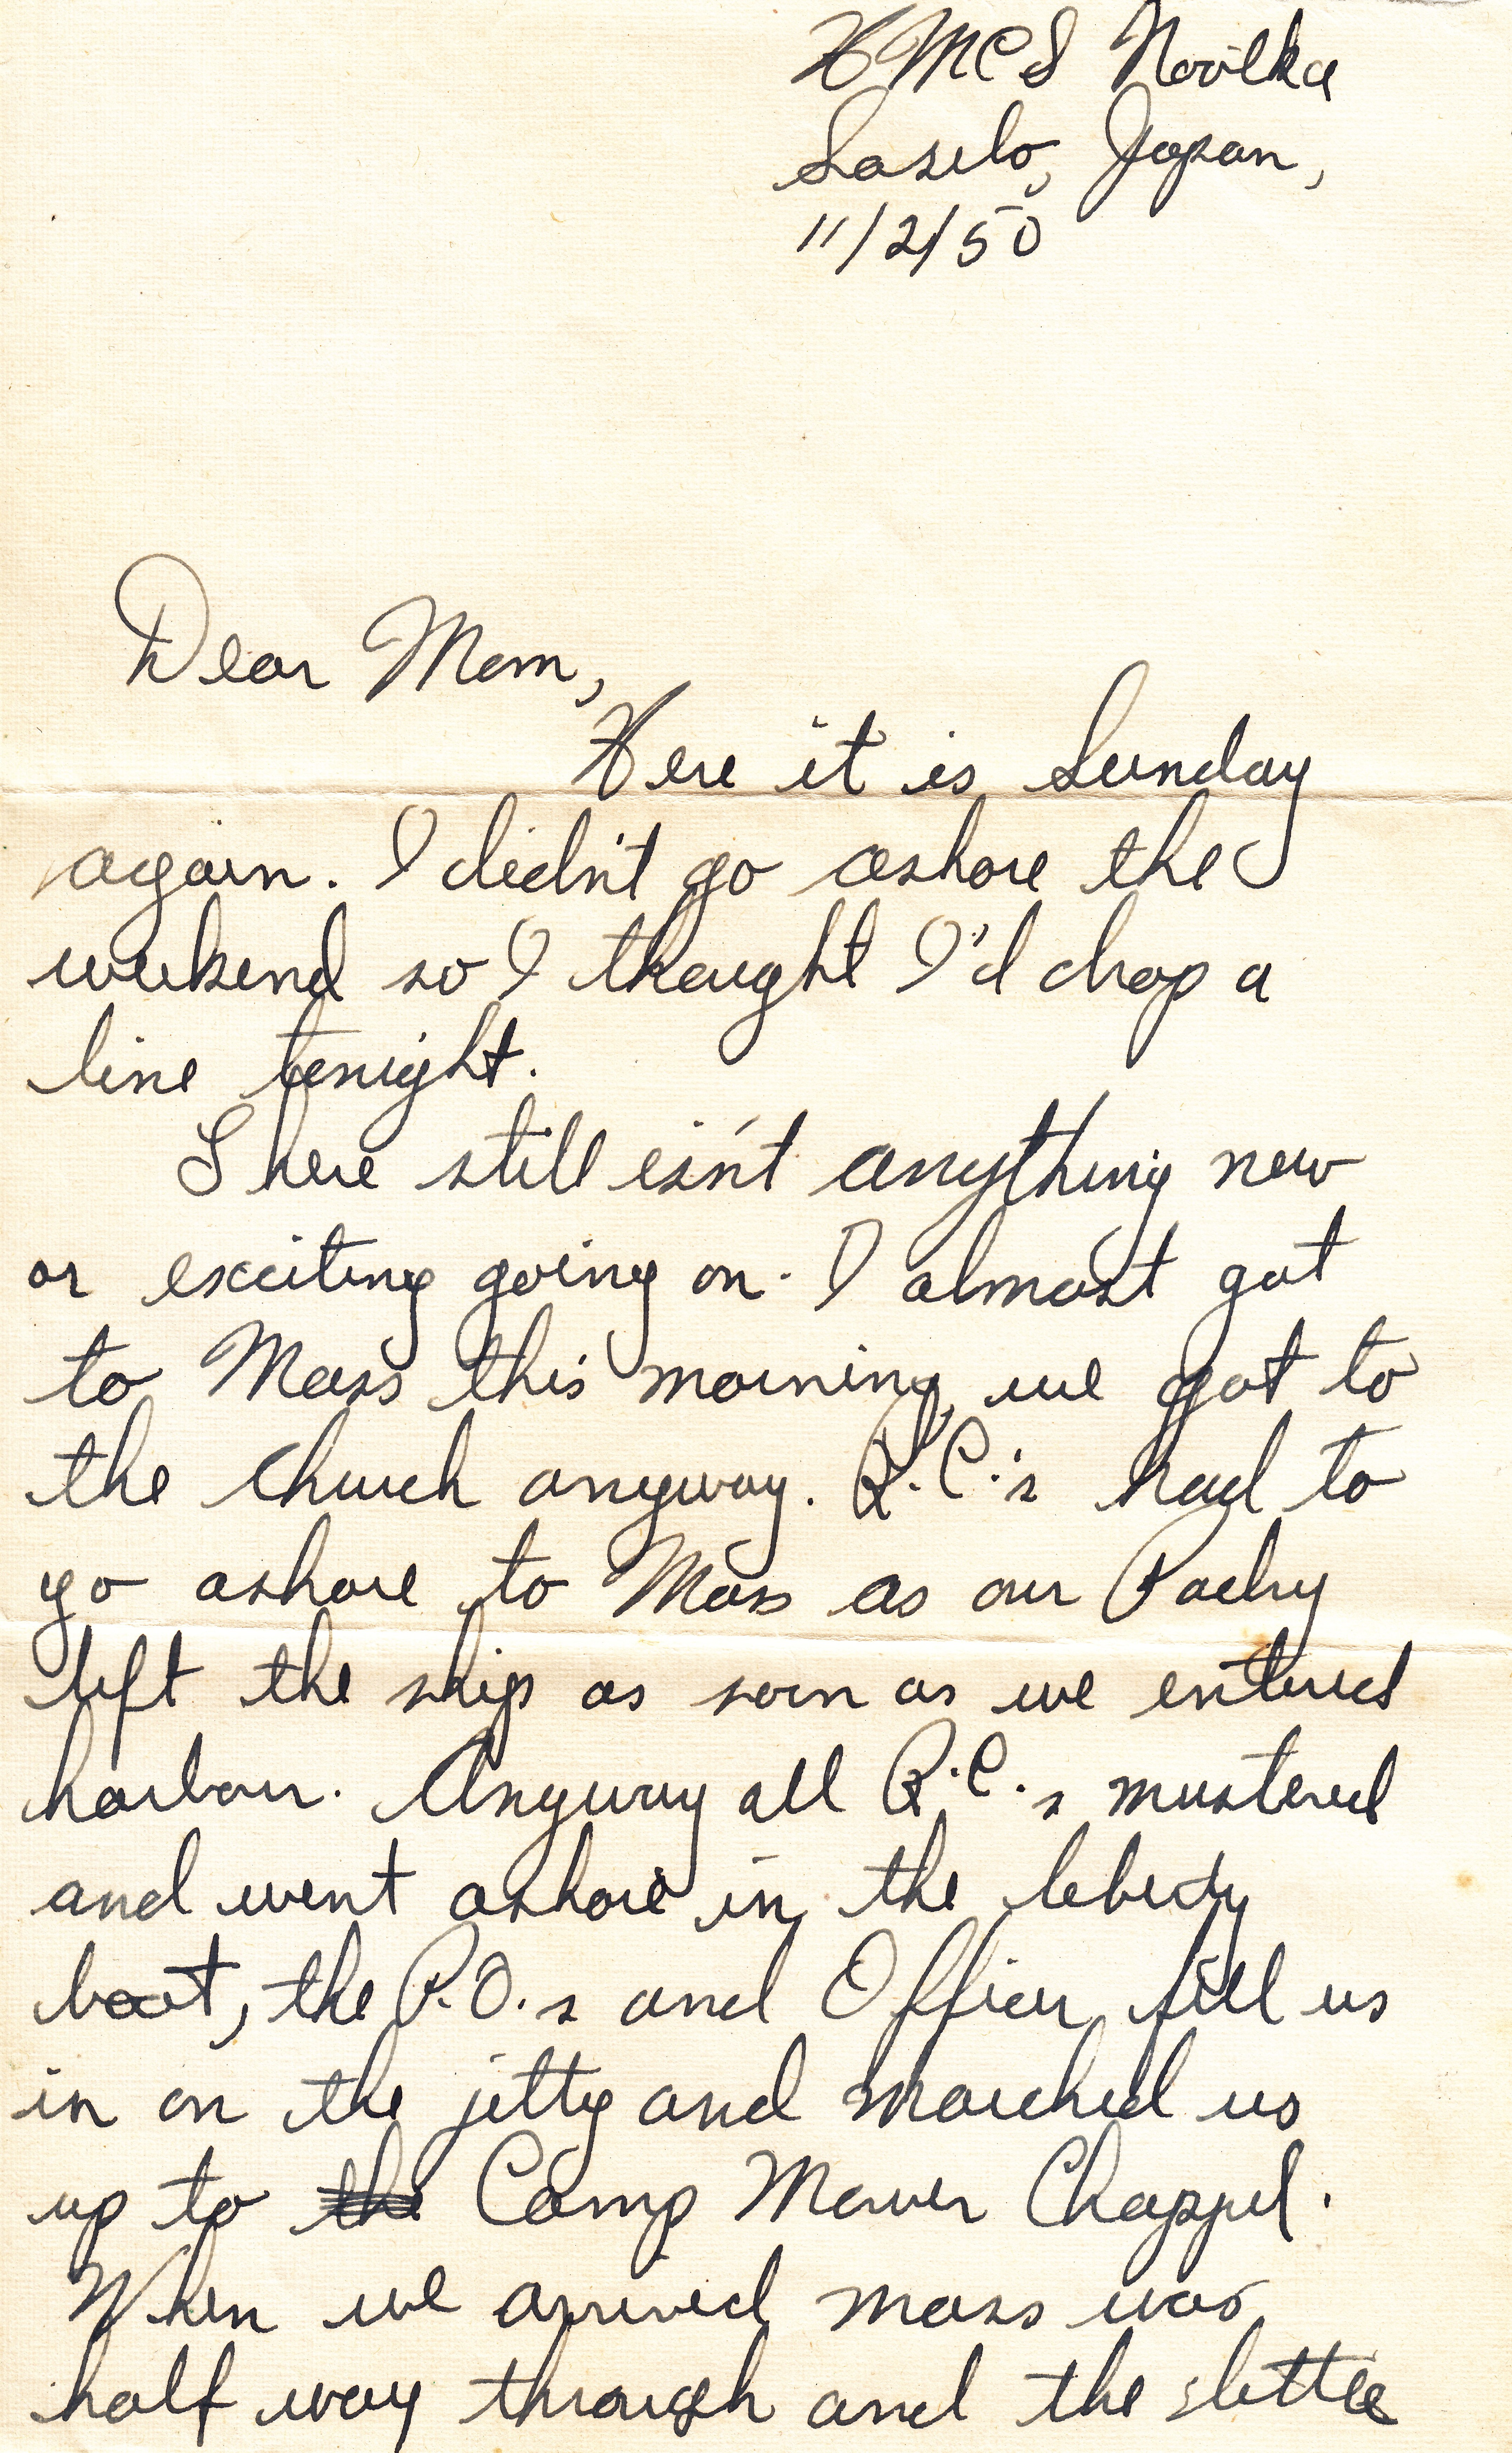 HMCS Nootka
Sasebo, Japan,
11/2/50
Dear Mom,
Here it is Sunday
again. I didn't go ashore the
weekend so I thought I'd drop a
line tonight.
There still isn't anything new
or exciting going on. I almost got
to Mass this morning, we got to
the church anyway. R.C.'s had to
go ashore to Mass as our Padry
left the ship as soon as we entered
harbour. Anyway all R.C.s mustered
and went ashore in the liberty
boat, the P.O.s and Officer fell us
in on the jetty and marched us
up to the Camp Mower Chappel.
When we arrived mass was
half way through and the little